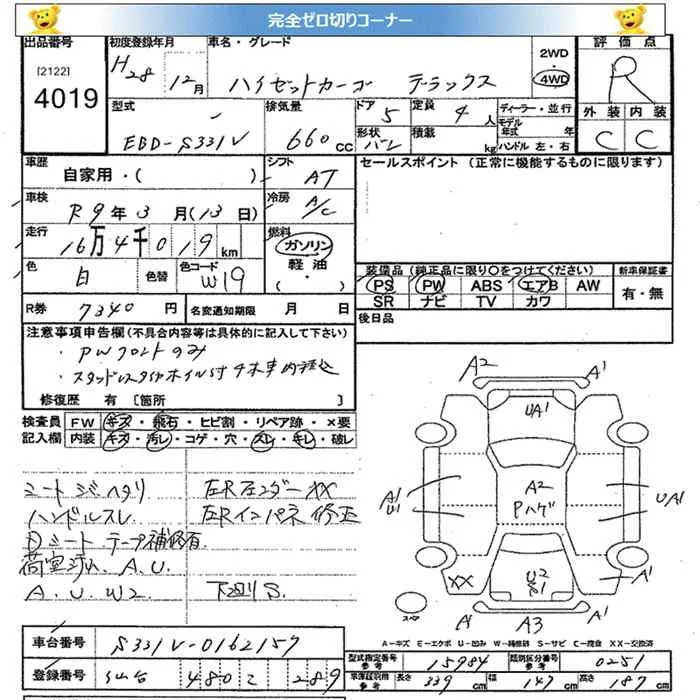 完全ゼロ切りコーナー
出品番号 初度登録年月 車名・グレード 評価点
[2122] 4019 H28 12月 ハイゼットカーゴ デラックス 2WD 4WD R
型式 排気量 ドア 5 定員 4人 ディーラー・並行 外装 内装
EBD-S331V 660cc 形状 バン 積載 kg モデル年式 年 ハンドル 左・右 C C
車歴 自家用・( ) シフト AT セールスポイント (正常に機能するものに限ります)
車検 R9年3月(13日) 冷房 A/C
走行 16万4千019km 燃料 ガソリン 軽油 (・)
色 白 色替 色コード W19 装備品(純正品に限り○をつけてください) 新車保証書
PS PW ABS エアB AW 有・無
R券 7340円 名変通知期限 月 日 SR ナビ TV カワ
注意事項申告欄(不具合内容等は具体的に記入して下さい) 後日品
・PWフロントのみ
・スタッドレスタイヤホイル付4本車内積込
修復歴 有〔箇所 〕
検査員記入欄 FW キズ・飛石・ヒビ割・リペア跡・×要
内装 キズ・汚レ・コゲ・穴・スレ・キレ・破レ
シートジハタリ 左Rフェンダー XX
ハンドルスレ 左Rインパネ修正
Dシート テープ補修有
荷室汚れ、A.U.
A.U.W2 下廻りS.
A2 A1
UA1
A1 U1 A2 Pハゲ UA1
XX U2 S1 A1
スペア A1 A3 A1
A-キズ E-エクボ U-凹み W-補修跡 S-サビ C-腐食 XX-交換済
車台番号 S331V-0162157
型式指定番号 参考 15984 類別区分番号 参考 0251
登録番号 仙台 480 こ 289
車庫証明用 参考 長さ 339cm 幅 147cm 高さ 187cm